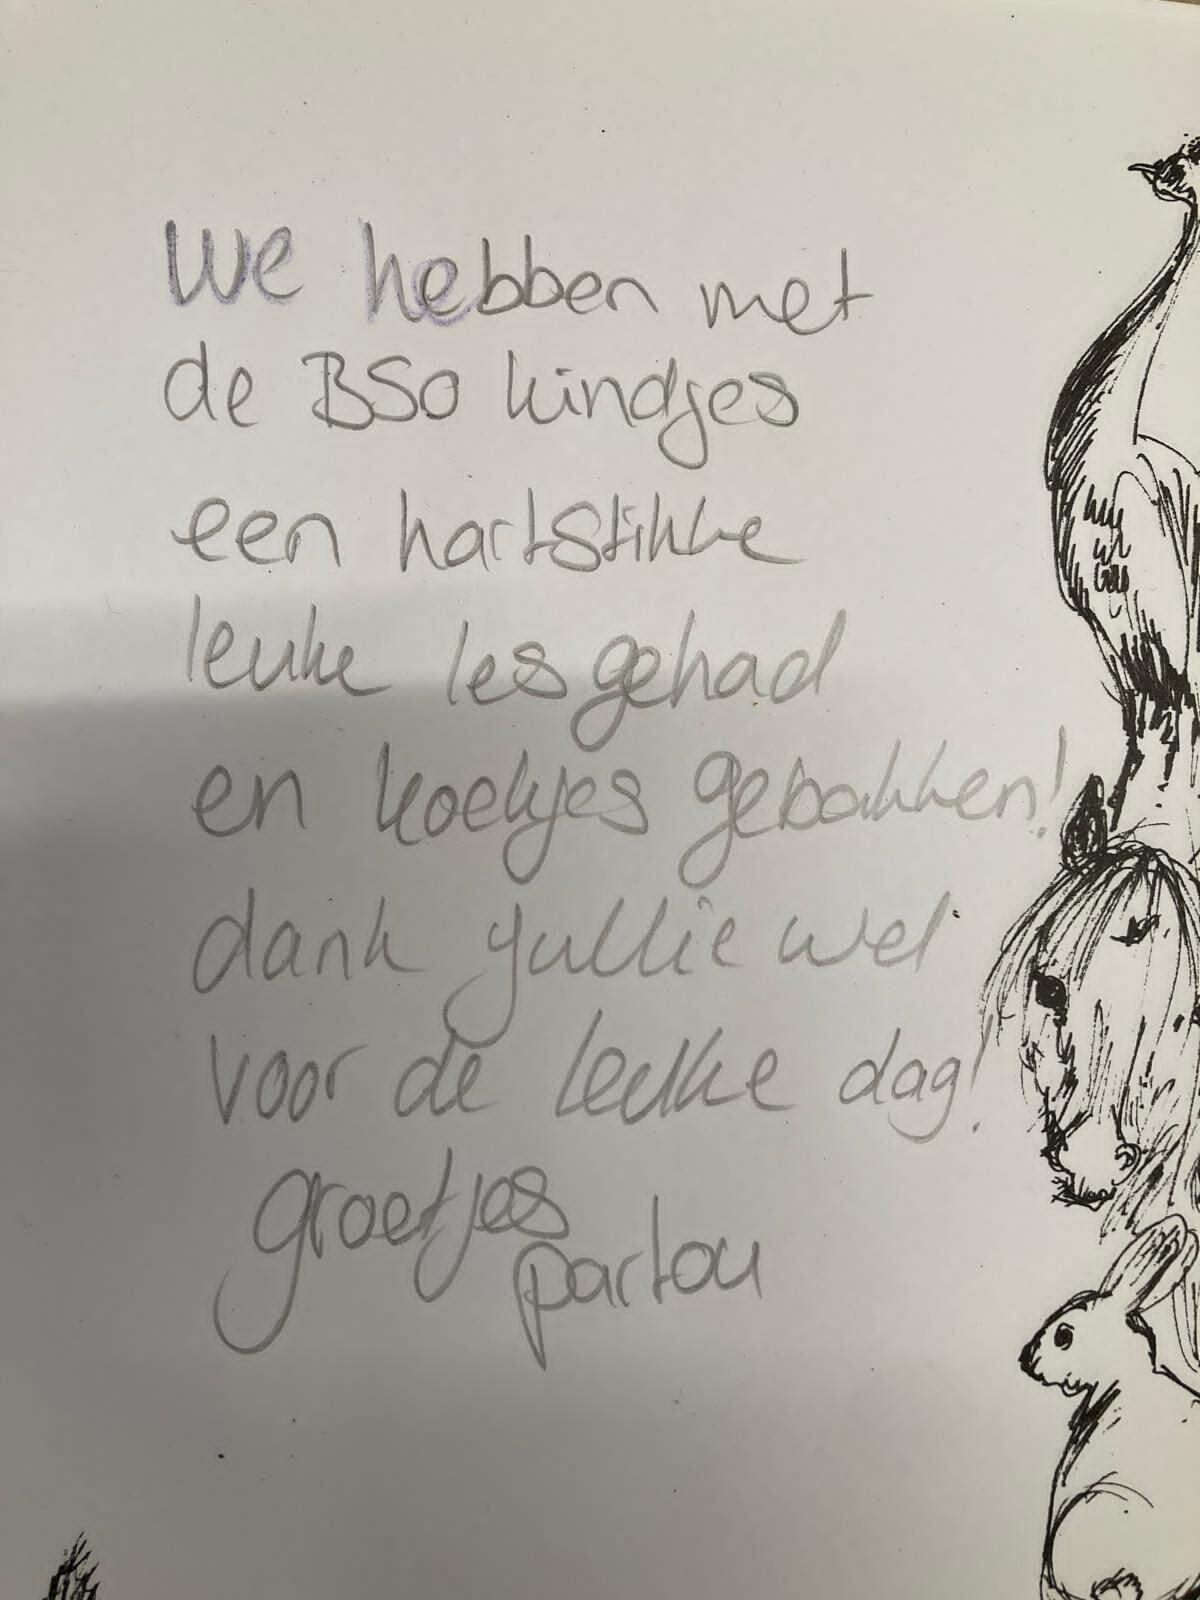 We hebben met
de BSO kindjes
een hartstikke
leuke les gehad
en koekjes gebakken!
dank jullie wel
voor de leuke dag!
groetjes
partou